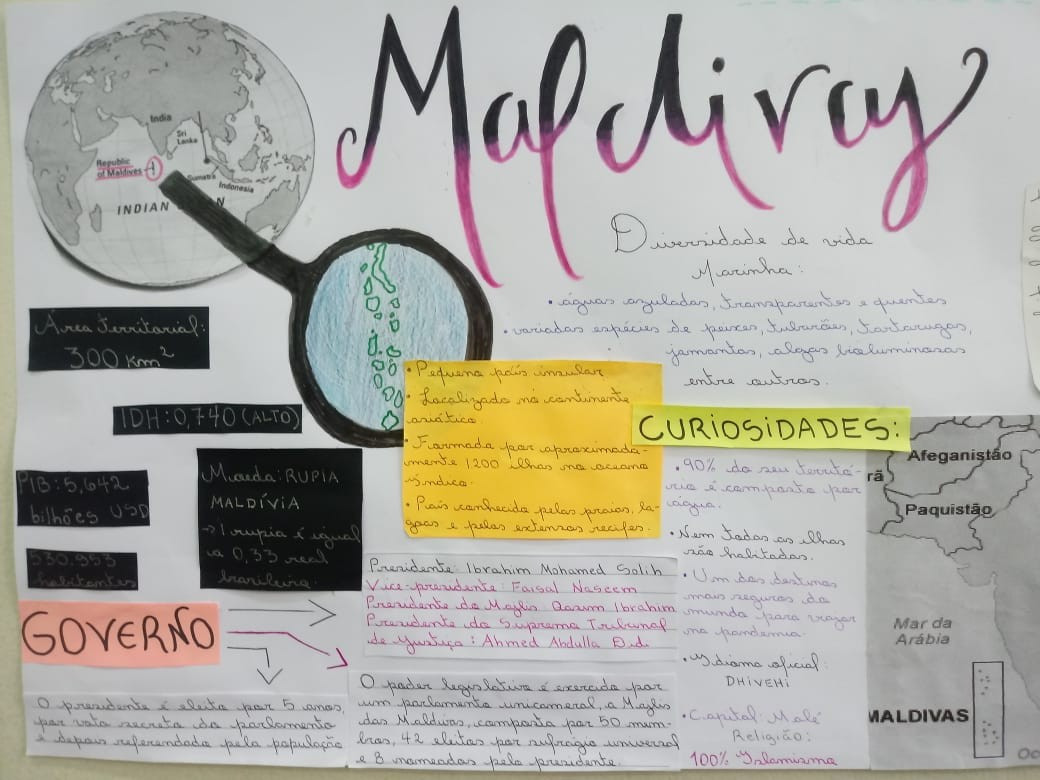 Maldivas
India
Sri
Lanka
Republic
of Maldives
Sumatra
Indonesia
INDIAN
Diversidade de vida
Marinha:
• águas azuladas, transparentes e quentes
• variadas espécies de peixes, tubarões, tartarugas,
jamantas, algas bioluminosas
entre outros.
Área territorial:
300 Km²
IDH: 0,740 (ALTO)
PIB: 5,642
bilhões USD
530.953
habitantes
Moeda: RUPIA
MALDÍVIA
→ 1 rupia é igual
a 0,33 real
brasileiro.
• Pequeno país insular
• Localizado no continente
asiático.
• Formada por aproximada-
mente 1200 ilhas no oceano
Índico.
• País conhecido pelas praias, la-
goas e pelos extensos recifes.
CURIOSIDADES:
• 90% do seu territó-
rio é composto por
água.
• Nem todas as ilhas
são habitadas.
• Um dos destinos
mais seguros do
mundo para viajar
na pandemia.
• Idioma oficial:
DHIVEHI
• Capital: Malé
Religião:
100% Islamismo
GOVERNO
Presidente: Ibrahim Mohamed Solih
Vice-presidente: Faisal Naseem
Presidente do Majlis Qasim Ibrahim
Presidente do Supremo Tribunal
de Justiça: Ahmed Abdulla D.d.
O presidente é eleito por 5 anos,
por voto secreto do parlamento
e depois referendado pela população
O poder legislativo é exercido por
um parlamento unicameral, o Majlis
das Maldivas, composto por 50 mem-
bros, 42 eleitos por sufrágio universal
e 8 nomeados pelo presidente.
Afeganistão
rã
Paquistão
Mar da
Arábia
MALDIVAS
Oc